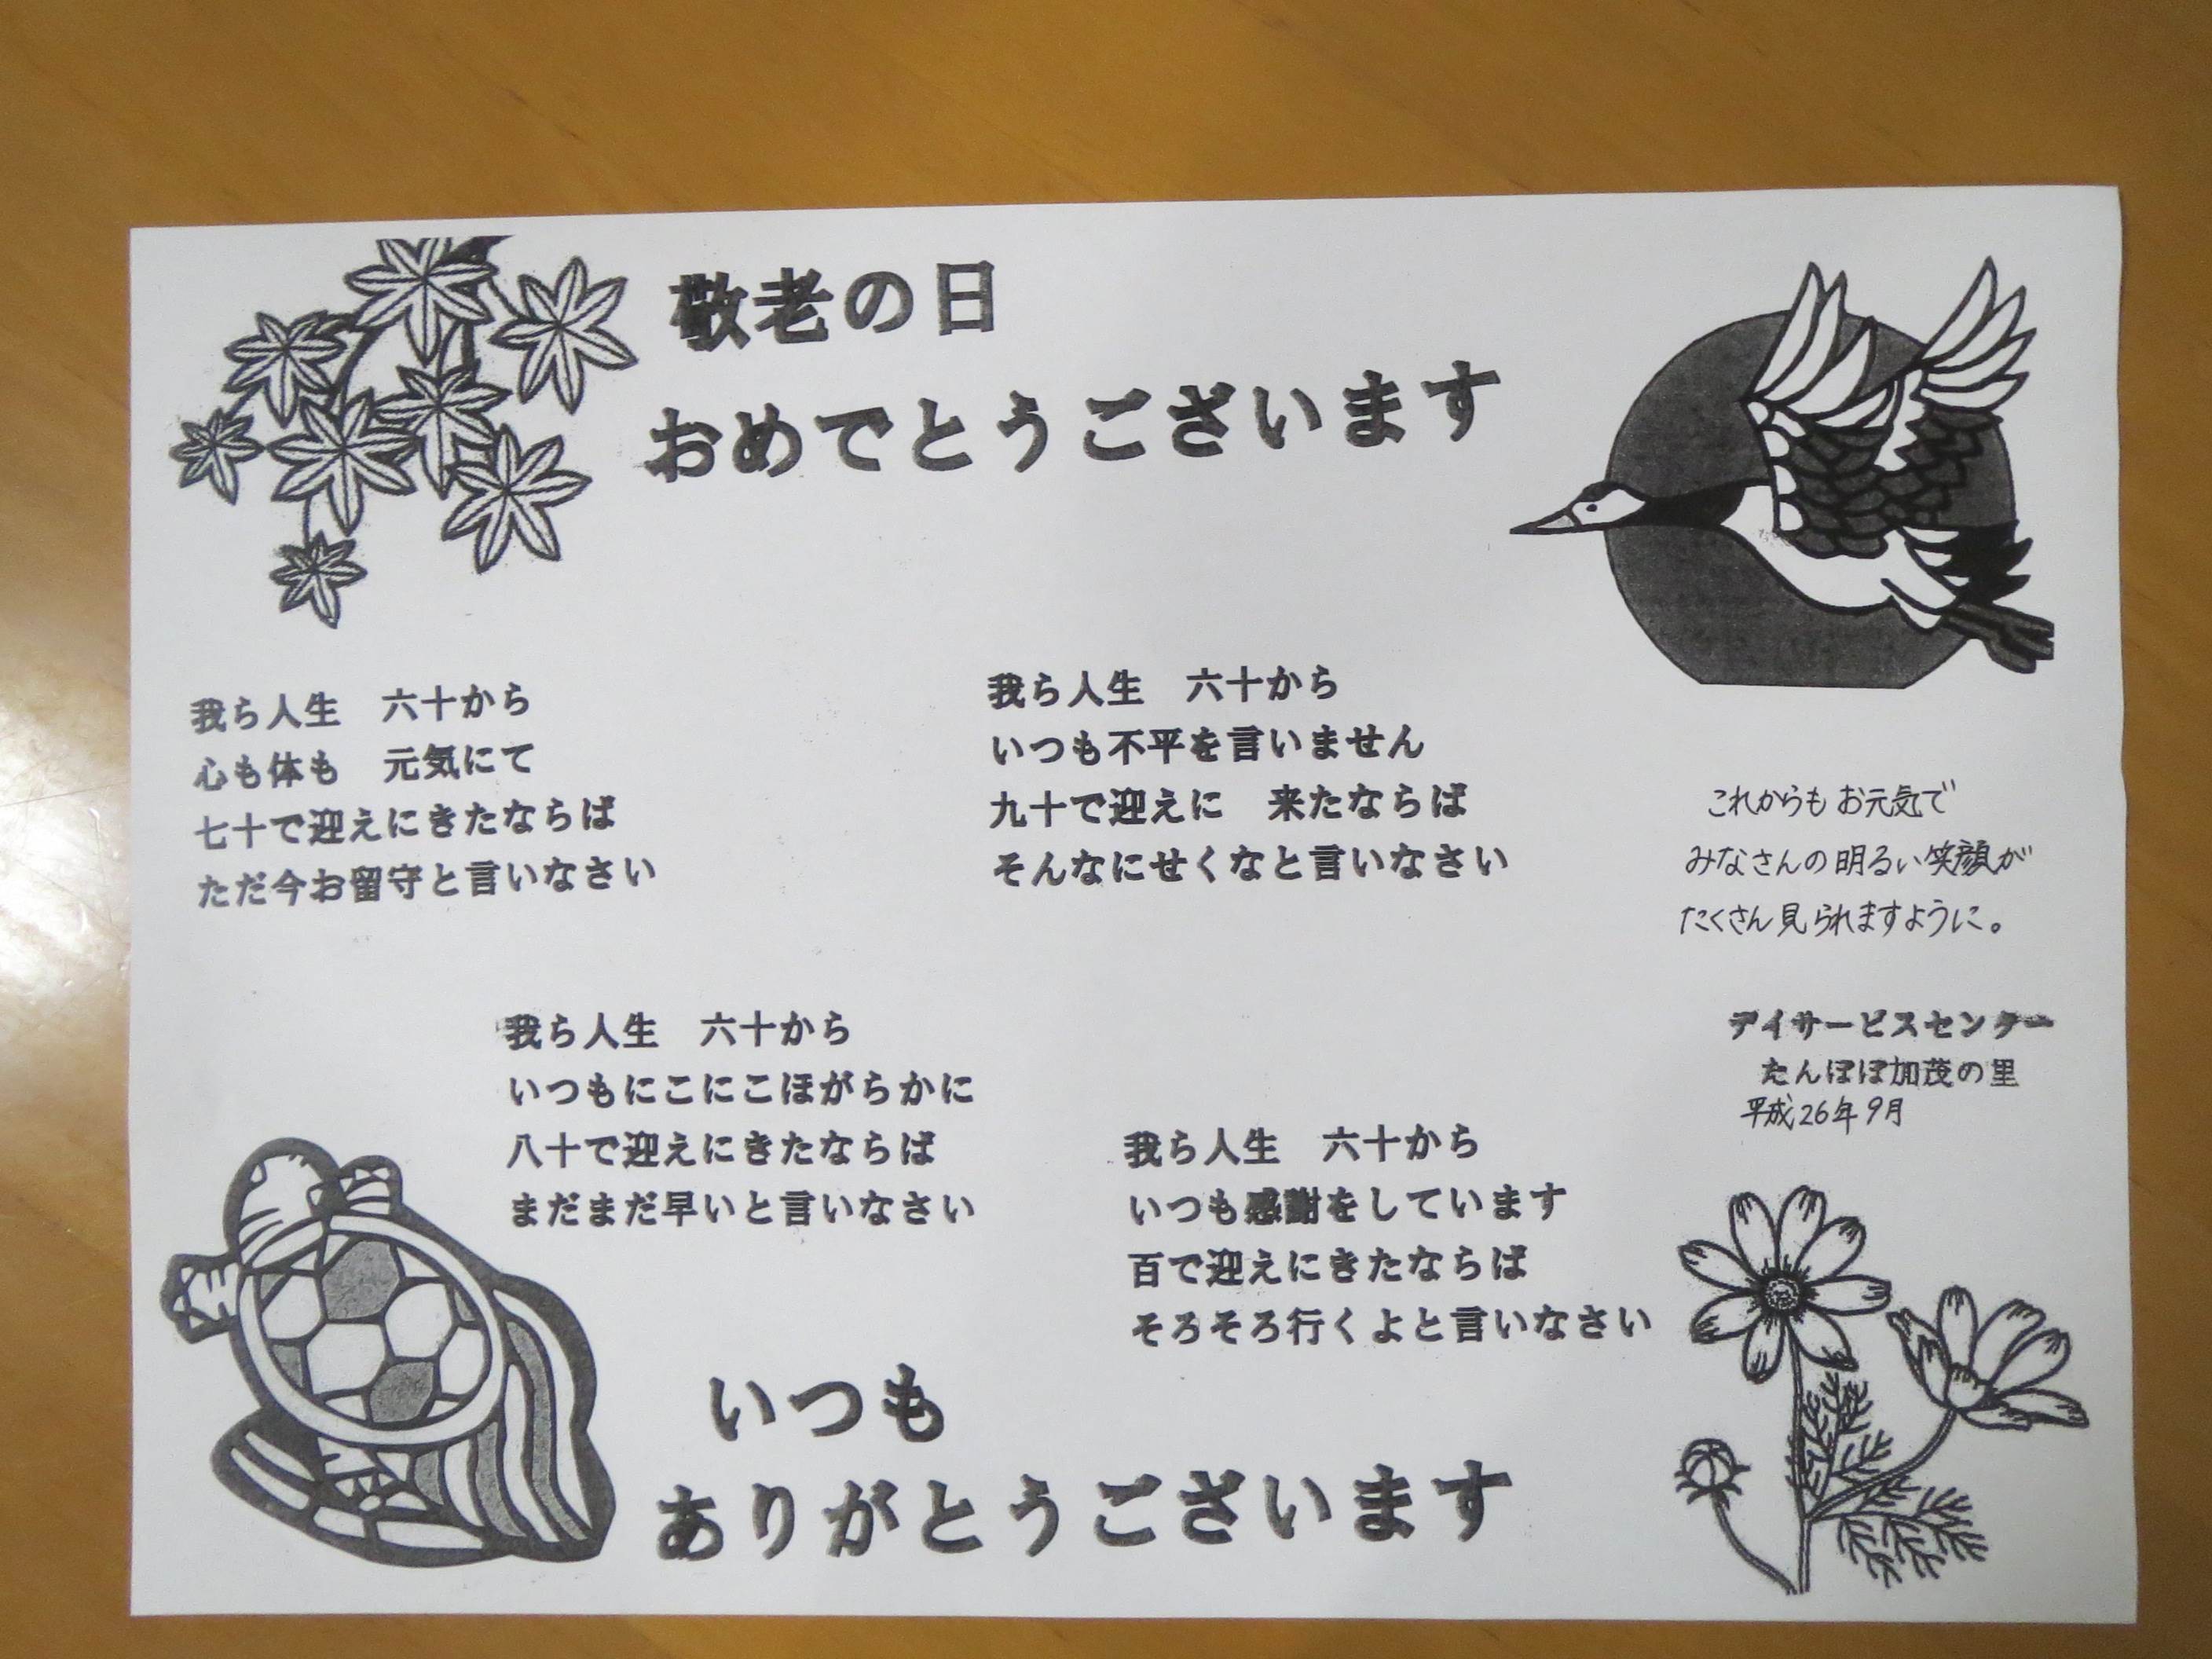 敬老の日
おめでとうございます
我ら人生　六十から
心も体も　元気にて
七十で迎えにきたならば
ただ今お留守と言いなさい
我ら人生　六十から
いつもにこにこほがらかに
八十で迎えにきたならば
まだまだ早いと言いなさい
我ら人生　六十から
いつも不平を言いません
九十で迎えに　来たならば
そんなにせくなと言いなさい
我ら人生　六十から
いつも感謝をしています
百で迎えにきたならば
そろそろ行くよと言いなさい
これからもお元気で
みなさんの明るい笑顔が
たくさん見られますように。
デイサービスセンター
たんぽぽ加茂の里
平成26年9月
いつも
ありがとうございます